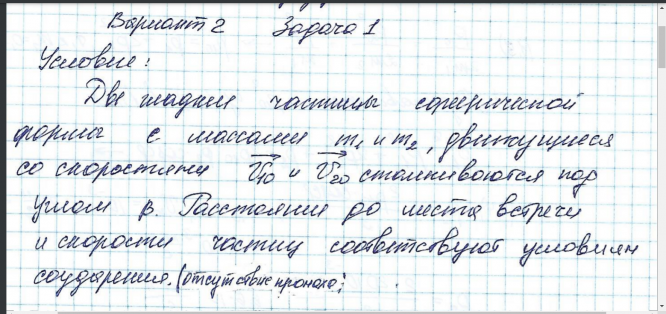 Вариант 2 Задача 1
Условие:
Две гладкие частицы сферической
формы с массами m₁ и m₂, движущиеся
со скоростями v₁₀ и v₂₀ сталкиваются под
углом β. Расстояния до места встречи
и скорости частиц соответствуют условиям
соударения. (отсутствие промаха;